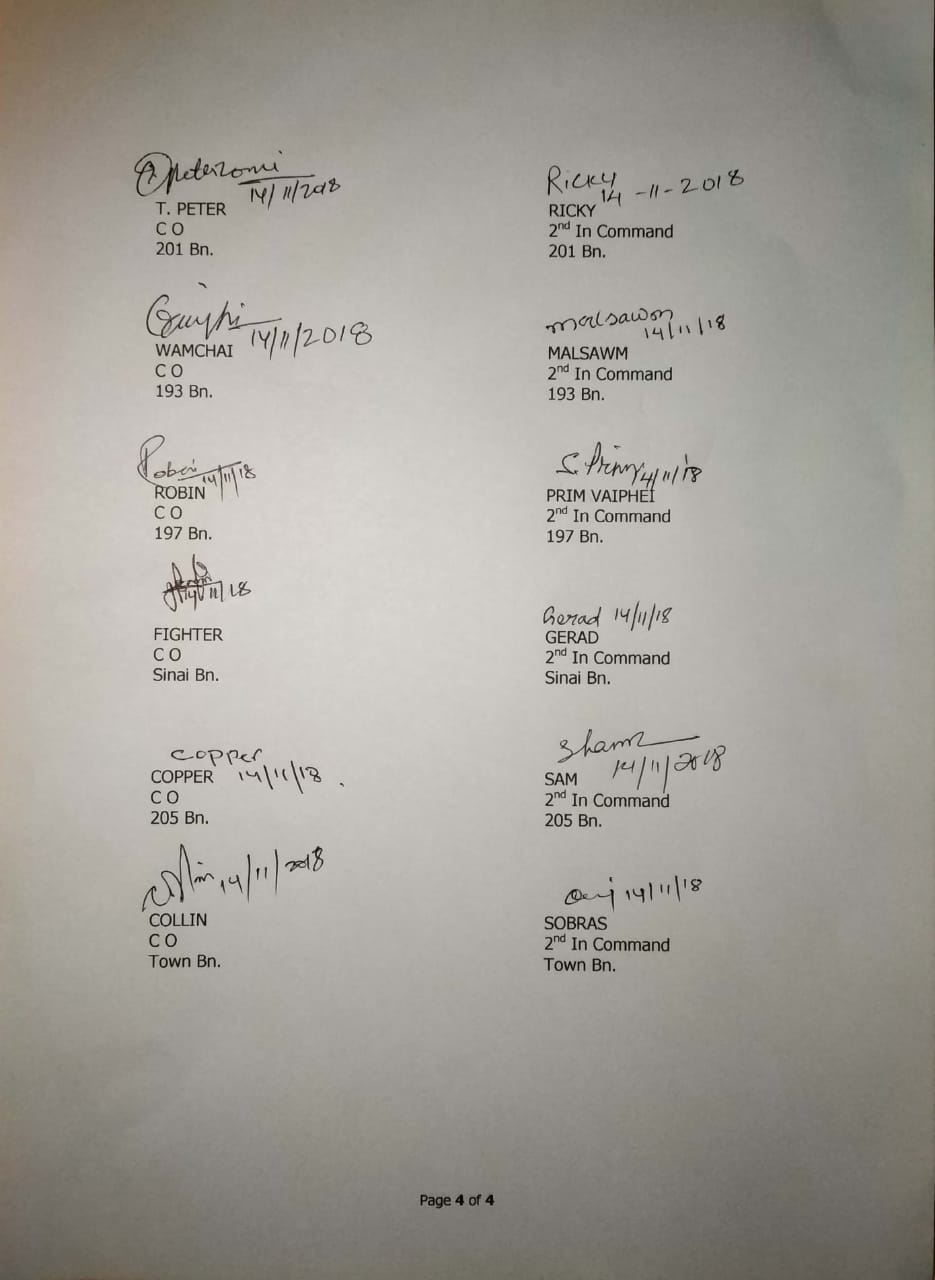 Peterzomi
14/11/2018
T. PETER
C O
201 Bn.
Ricky
14-11-2018
RICKY
2nd In Command
201 Bn.
14/11/2018
WAMCHAI
C O
193 Bn.
malsawm
14/11/18
MALSAWM
2nd In Command
193 Bn.
Robin
14/11/18
ROBIN
C O
197 Bn.
S. Prim
14/11/18
PRIM VAIPHEI
2nd In Command
197 Bn.
14/11/18
FIGHTER
C O
Sinai Bn.
Gerad 14/11/18
GERAD
2nd In Command
Sinai Bn.
copper
COPPER 14/11/18
C O
205 Bn.
14/11/2018
SAM
2nd In Command
205 Bn.
14/11/2018
COLLIN
C O
Town Bn.
14/11/18
SOBRAS
2nd In Command
Town Bn.
Page 4 of 4